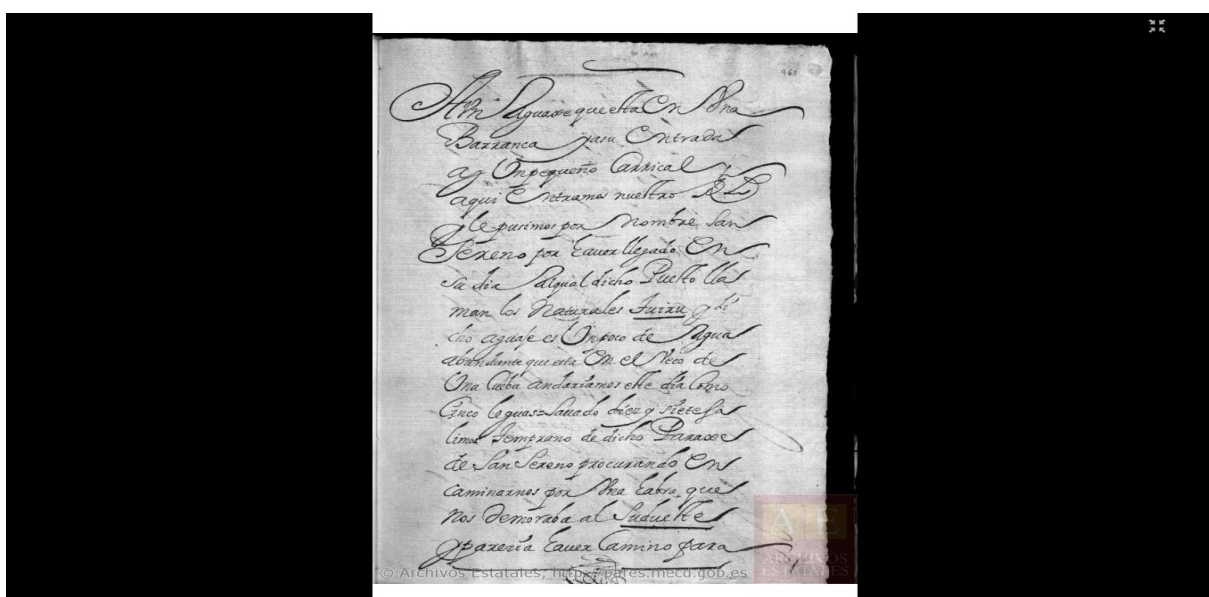 963
A Un Aguaxe que esta En Una
Barranca y a su Entrada
ay Un pequeño Carrical
aqui Entramos nuestro
y le pusimos por Nombre San
Sereno por haver llegado En
su dia Al qual dicho Puesto lla
man los Naturales Juiru y di
cho aguaje es Un poco de Agua
abundante que esta En el Veco de
Una Cueba andariamos este dia Como
Cinco leguas = Savado diez y siete Sa
limos Temprano de dicho Paraxe
de San Sereno procurando En
caminarnos por Una habra que
Nos Demoraba al Sudueste
y parecia haver Camino para
© Archivos Estatales, http://pares.mecd.gob.es
AE
ARCHIVOS
ESTATALES